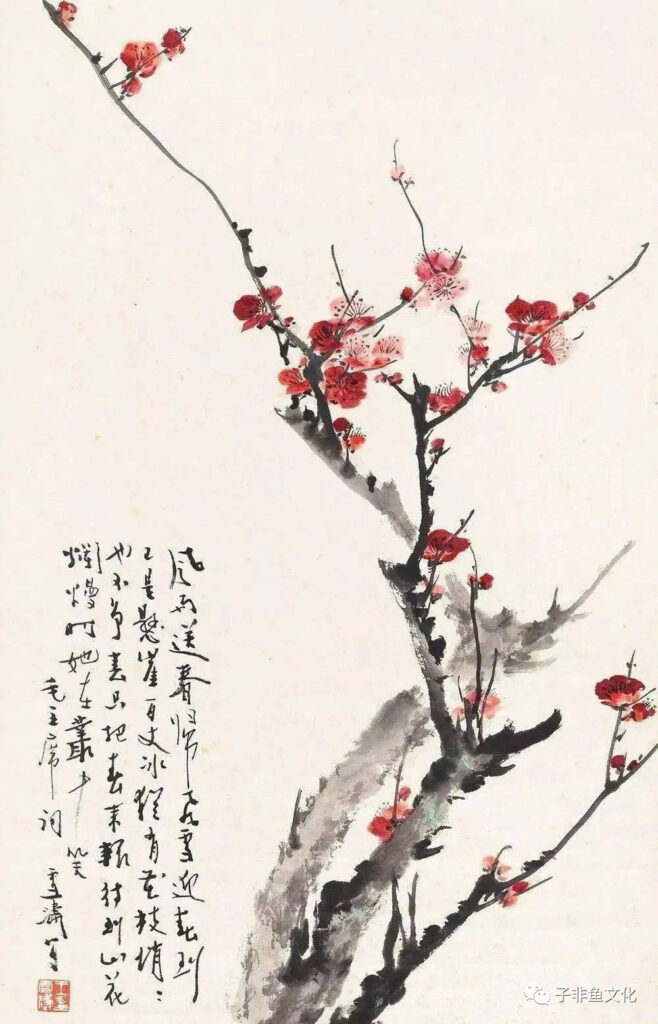 风雨送春歸飛雪迎春到
已是懸崖百丈冰猶有花枝俏〻
也不争春只把春来報待到山花
爛熳时她在叢中笑
毛主席词 雪濤写
子非鱼文化